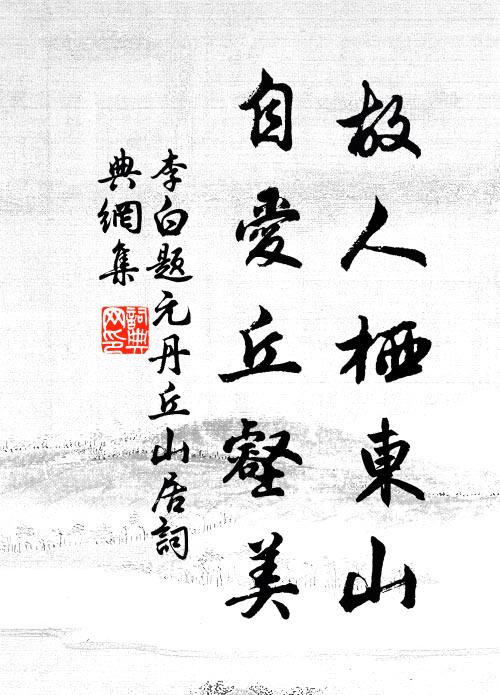 故人栖東山
自愛丘壑美
李白题元丹丘山居詞
典網集
詞典网印